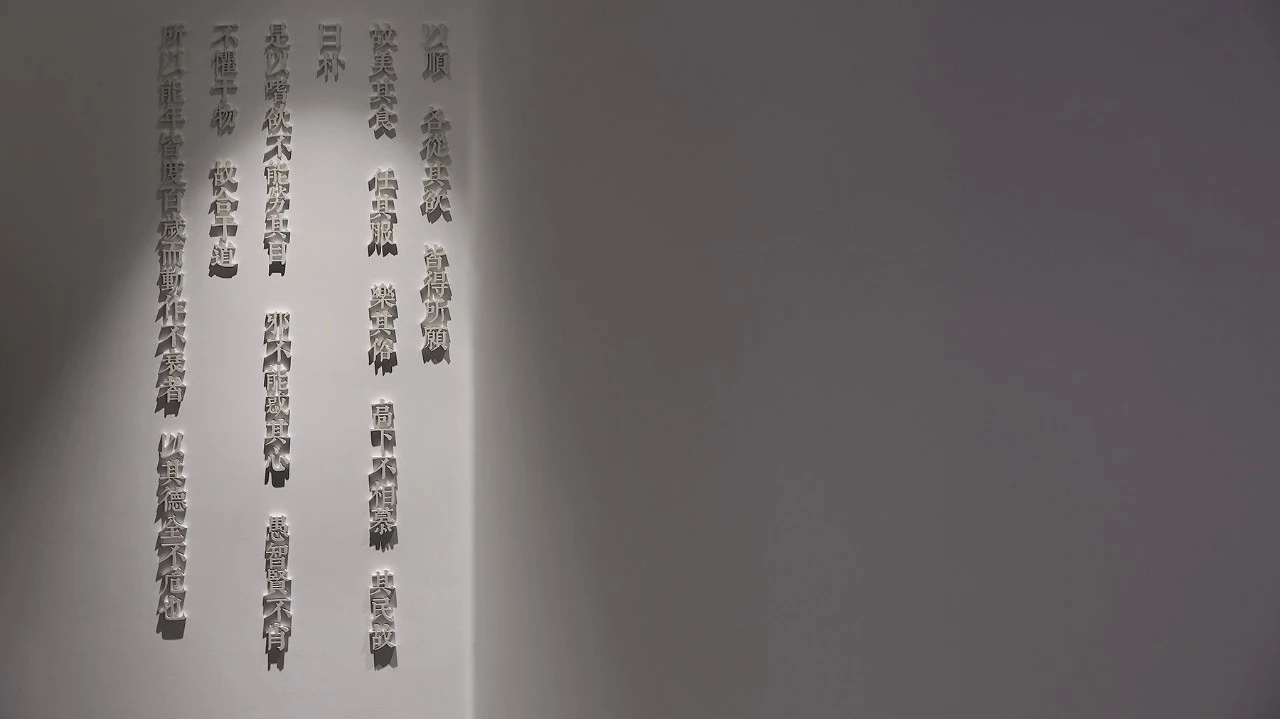 以順 各從其欲 皆得所願
故美其食 任其服 樂其俗 高下不相慕 其民故
曰朴
是以嗜欲不能勞其目 邪不能惑其心 愚智賢不肖
不懼于物 故合于道
所以能年皆度百歲而動作不衰者 以其德全不危也